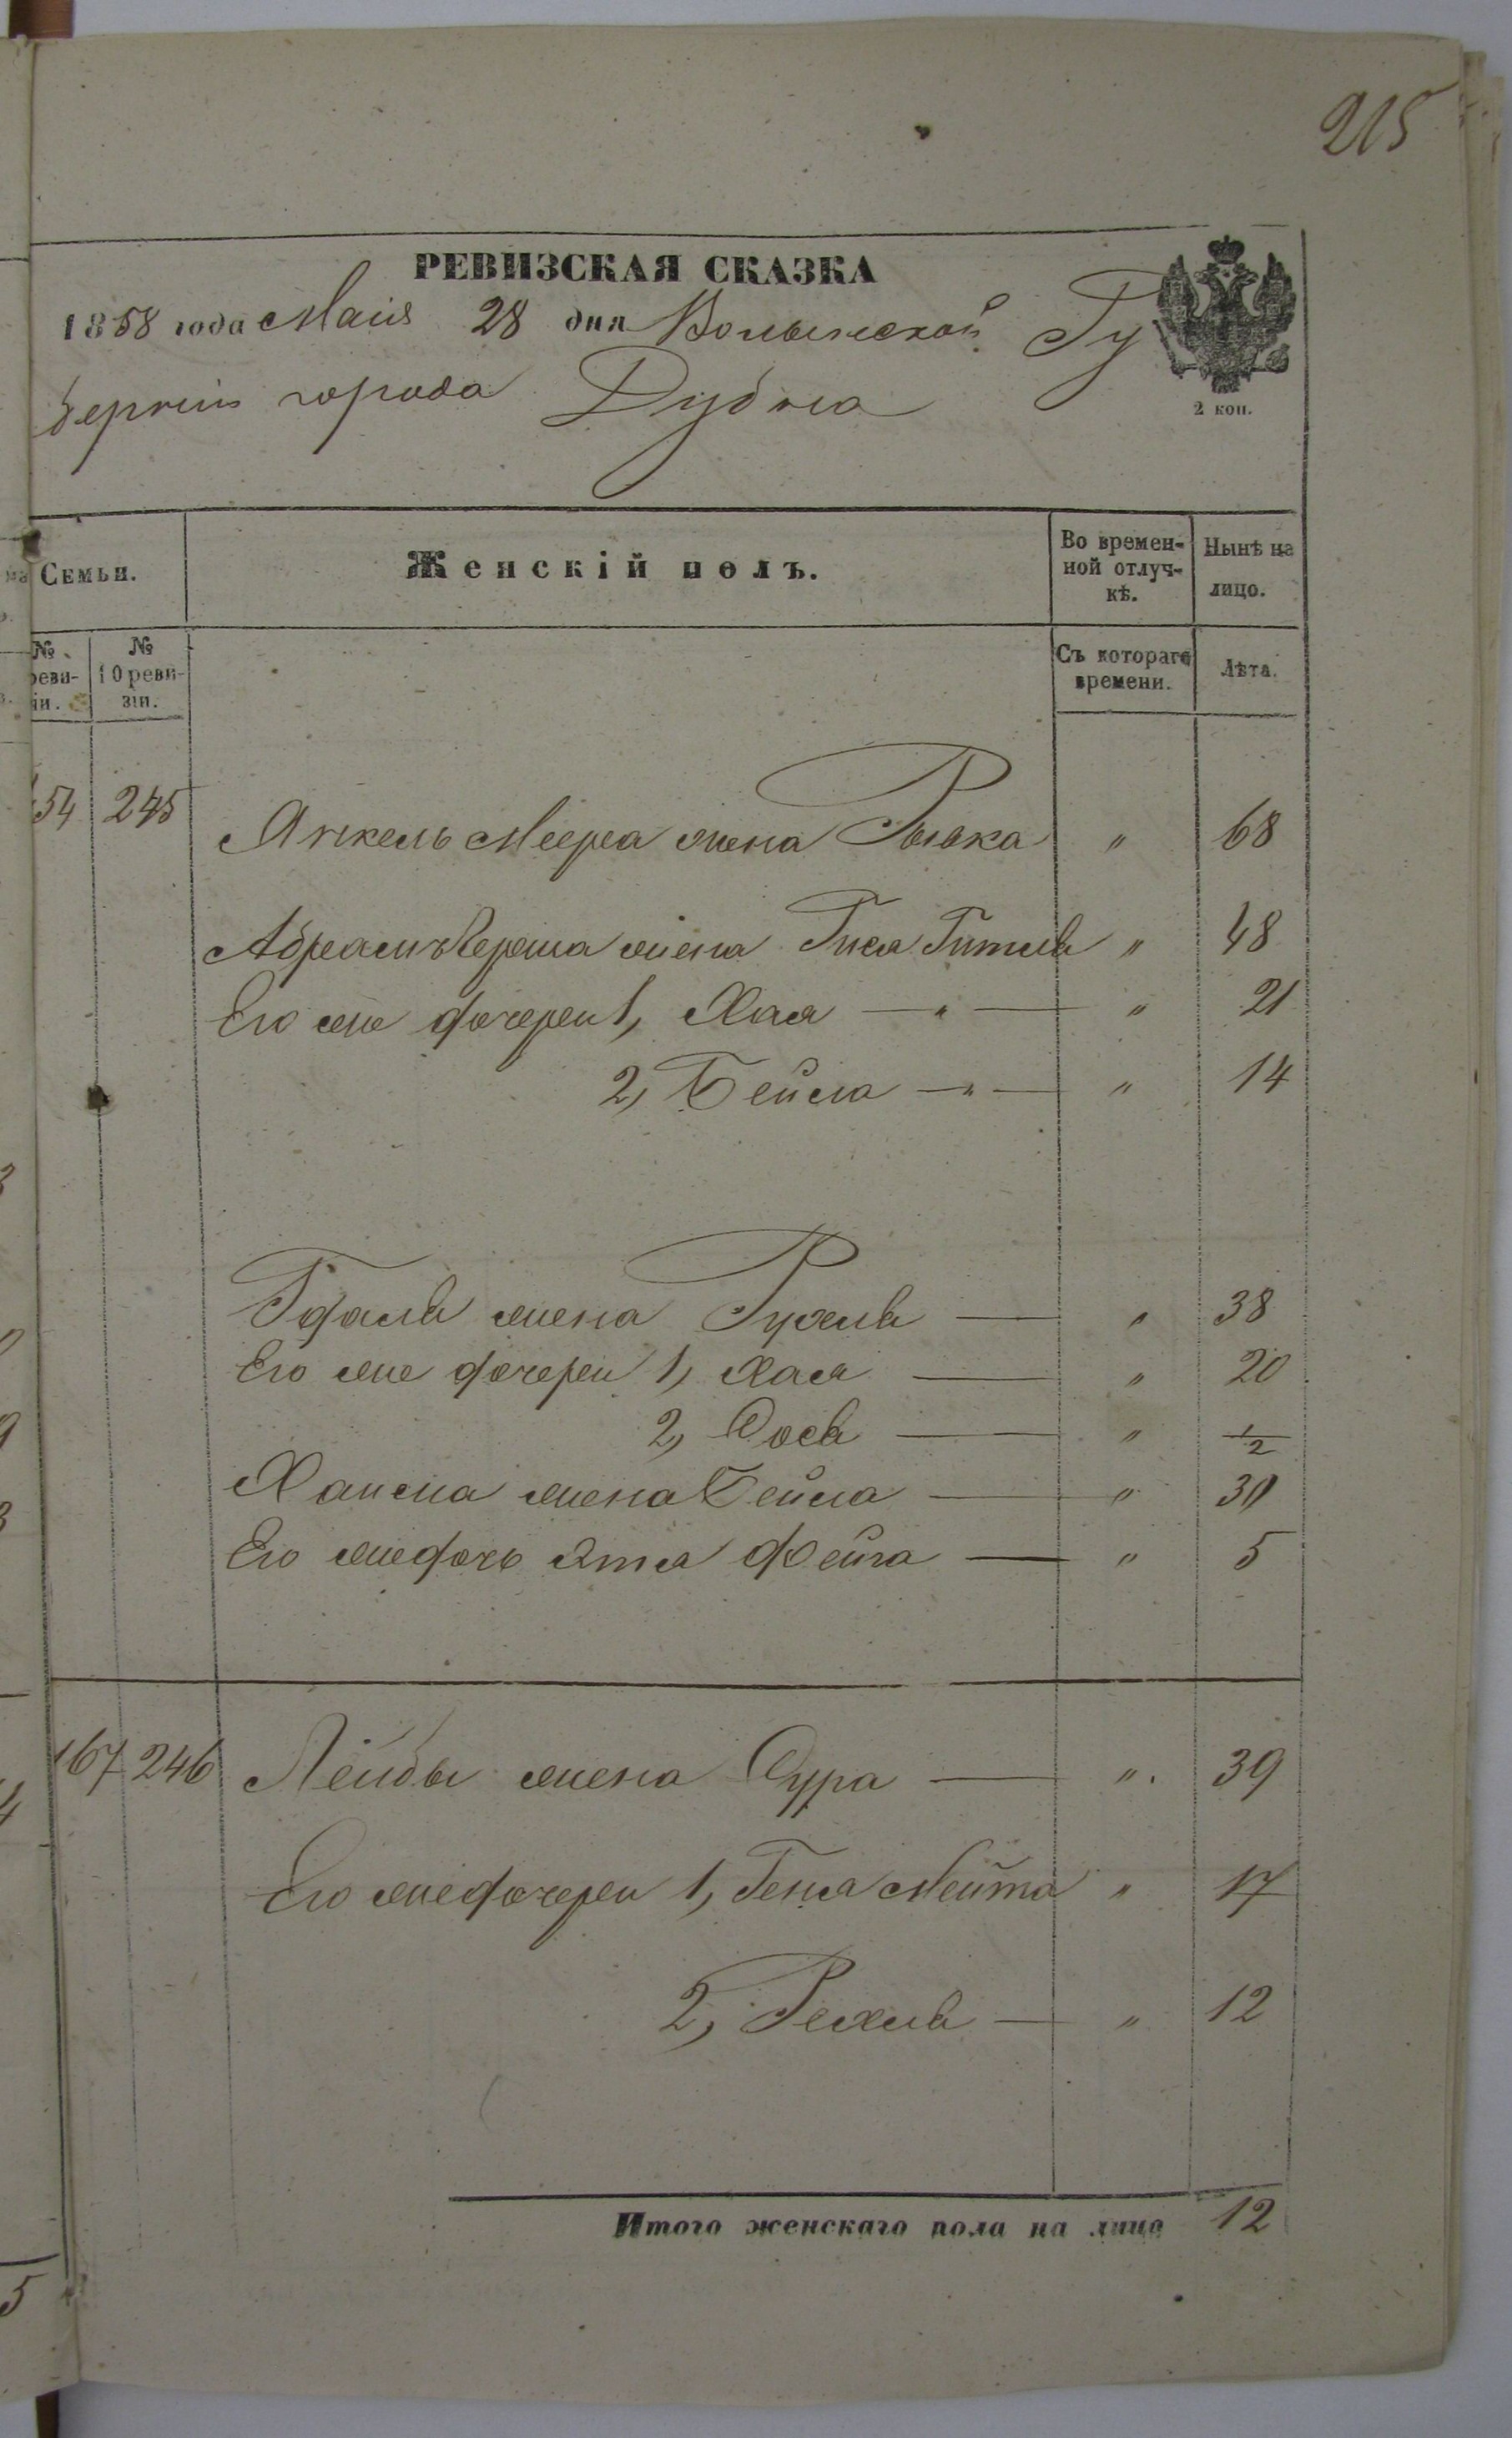 215
РЕВИЗСКАЯ СКАЗКА
1858 года Маія 28 дня Волынской Гу
берніи города Дубна
2 коп.
Семьи.
Женскій полъ.
Во времен-
ной отлуч-
кѣ.
Ныне на
лицо.
№
реви-
зіи.
№
10 реви-
зіи.
Съ котораго
времени.
Лѣта.
54 245 Янкель Меера жена Рывка " 68
Абрамъ Герша жена Гися Гитля " 48
Его же дочери 1, Хая — " — " 21
2, Бейла — " — " 14
Гдаля жена Рухля — " 38
Его же дочери 1, Хая — " 20
2, Сося — " 1/2
Хаима жена Бейла — " 30
Его же дочь Этя Фейга — " 5
167 246 Лейбы жена Сура — " 39
Его же дочери 1, Геня Мейта " 17
2, Рехля — " 12
Итого женскаго пола на лицо 12
5